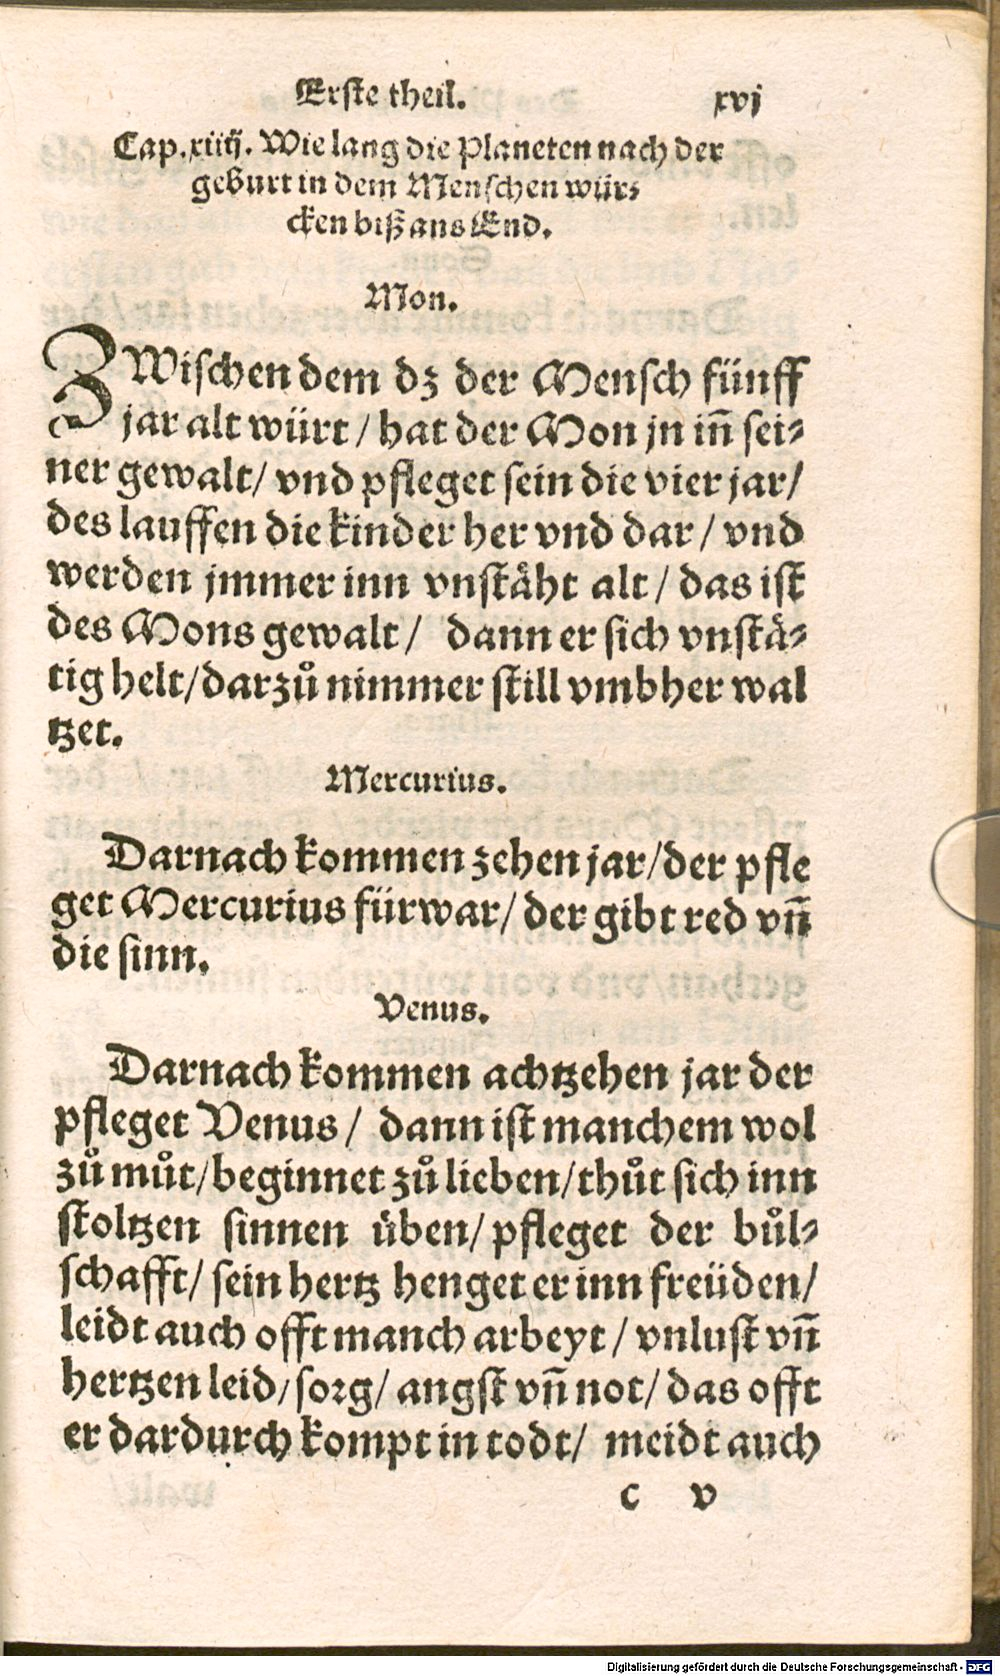 Erste theil. xvj
Cap. xiiij. Wie lang die Planeten nach der
geburt in dem Menschen wür⸗
cken biß ans End.
Mon.
ZWischen dem dz der Mensch fünff
jar alt würt / hat der Mon jn in̄ sei⸗
ner gewalt / vnd pfleget sein die vier jar /
des lauffen die kinder her vnd dar / vnd
werden jmmer inn vnstäht alt / das ist
des Mons gewalt / dann er sich vnstä⸗
tig helt / darzů nimmer still vmbher wal
tzet.
Mercurius.
Darnach kommen zehen jar / der pfle
get Mercurius fürwar / der gibt red vn̄
die sinn.
Venus.
Darnach kommen achtzehen jar der
pfleget Venus / dann ist manchem wol
zů můt / beginnet zů lieben / thůt sich inn
stoltzen sinnen üben / pfleget der bůl⸗
schafft / sein hertz henget er inn freüden /
leidt auch offt manch arbeyt / vnlust vn̄
hertzen leid / sorg / angst vn̄ not / das offt
er dardurch kompt in todt / meidt auch
c v
Digitalisierung gefördert durch die Deutsche Forschungsgemeinschaft - DFG